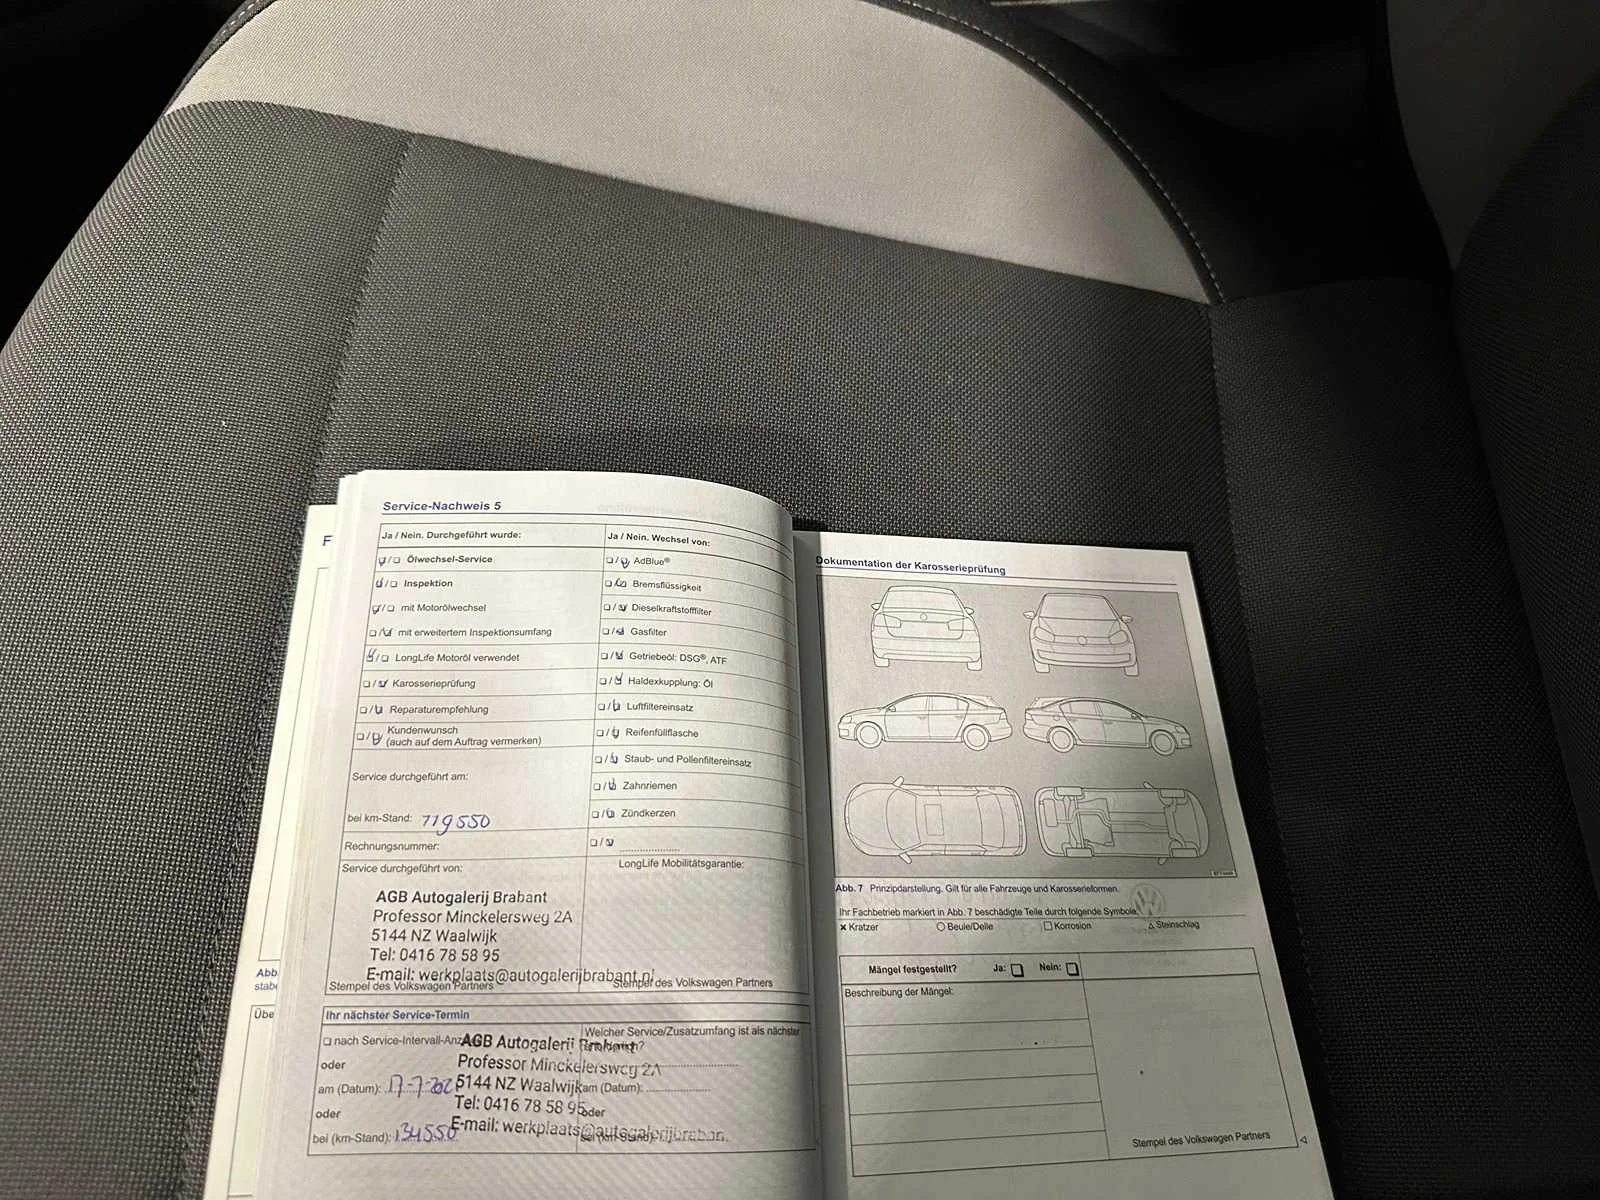 Service-Nachweis 5
Ja / Nein. Durchgeführt wurde:
Ölwechsel-Service
Inspektion
mit Motorölwechsel
mit erweitertem Inspektionsumfang
LongLife Motoröl verwendet
Karosserieprüfung
Reparaturempfehlung
Kundenwunsch
(auch auf dem Auftrag vermerken)
Service durchgeführt am:
bei km-Stand: 119550
Rechnungsnummer:
Service durchgeführt von:
AGB Autogalerij Brabant
Professor Minckelersweg 2A
5144 NZ Waalwijk
Tel: 0416 78 58 95
E-mail: werkplaats@autogalerijbrabant.nl
Stempel des Volkswagen Partners
Ja / Nein. Wechsel von:
AdBlue®
Bremsflüssigkeit
Dieselkraftstofffilter
Gasfilter
Getriebeöl: DSG®, ATF
Haldexkupplung: Öl
Luftfiltereinsatz
Reifenfüllflasche
Staub- und Pollenfiltereinsatz
Zahnriemen
Zündkerzen
LongLife Mobilitätsgarantie:
Stempel des Volkswagen Partners
Ihr nächster Service-Termin
nach Service-Intervall-Anz
oder
am (Datum): 17-7-202
oder
bei (km-Stand): 134550
Welcher Service/Zusatzumfang ist als nächster
am (Datum):
oder
bei (km-Stand):
AGB Autogalerij Brabant
Professor Minckelersweg 2A
5144 NZ Waalwijk
Tel: 0416 78 58 95
E-mail: werkplaats@autogalerijbraban.
F
Abb
stabe
Übe
Dokumentation der Karosserieprüfung
Abb. 7 Prinzipdarstellung. Gilt für alle Fahrzeuge und Karosserieformen.
Ihr Fachbetrieb markiert in Abb. 7 beschädigte Teile durch folgende Symbole:
× Kratzer ○ Beule/Delle □ Korrosion △ Steinschlag
Mängel festgestellt? Ja: Nein:
Beschreibung der Mängel:
Stempel des Volkswagen Partners